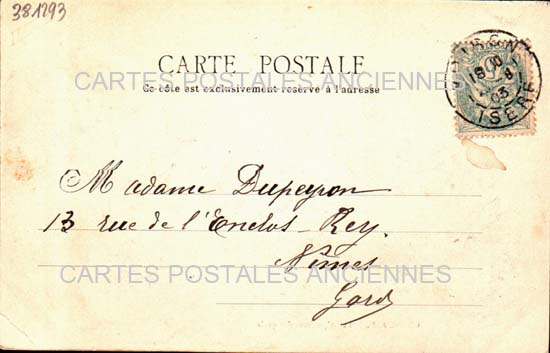 381293
CARTE POSTALE
CARTES POSTALES ANCIENNES
Ce côté est exclusivement réservé à l'adresse
ISÈRE
Madame Dupeyron
13 rue de l'Enclos-Rey.
Nîmes
CARTES POSTALES ANCIENNES
Gard